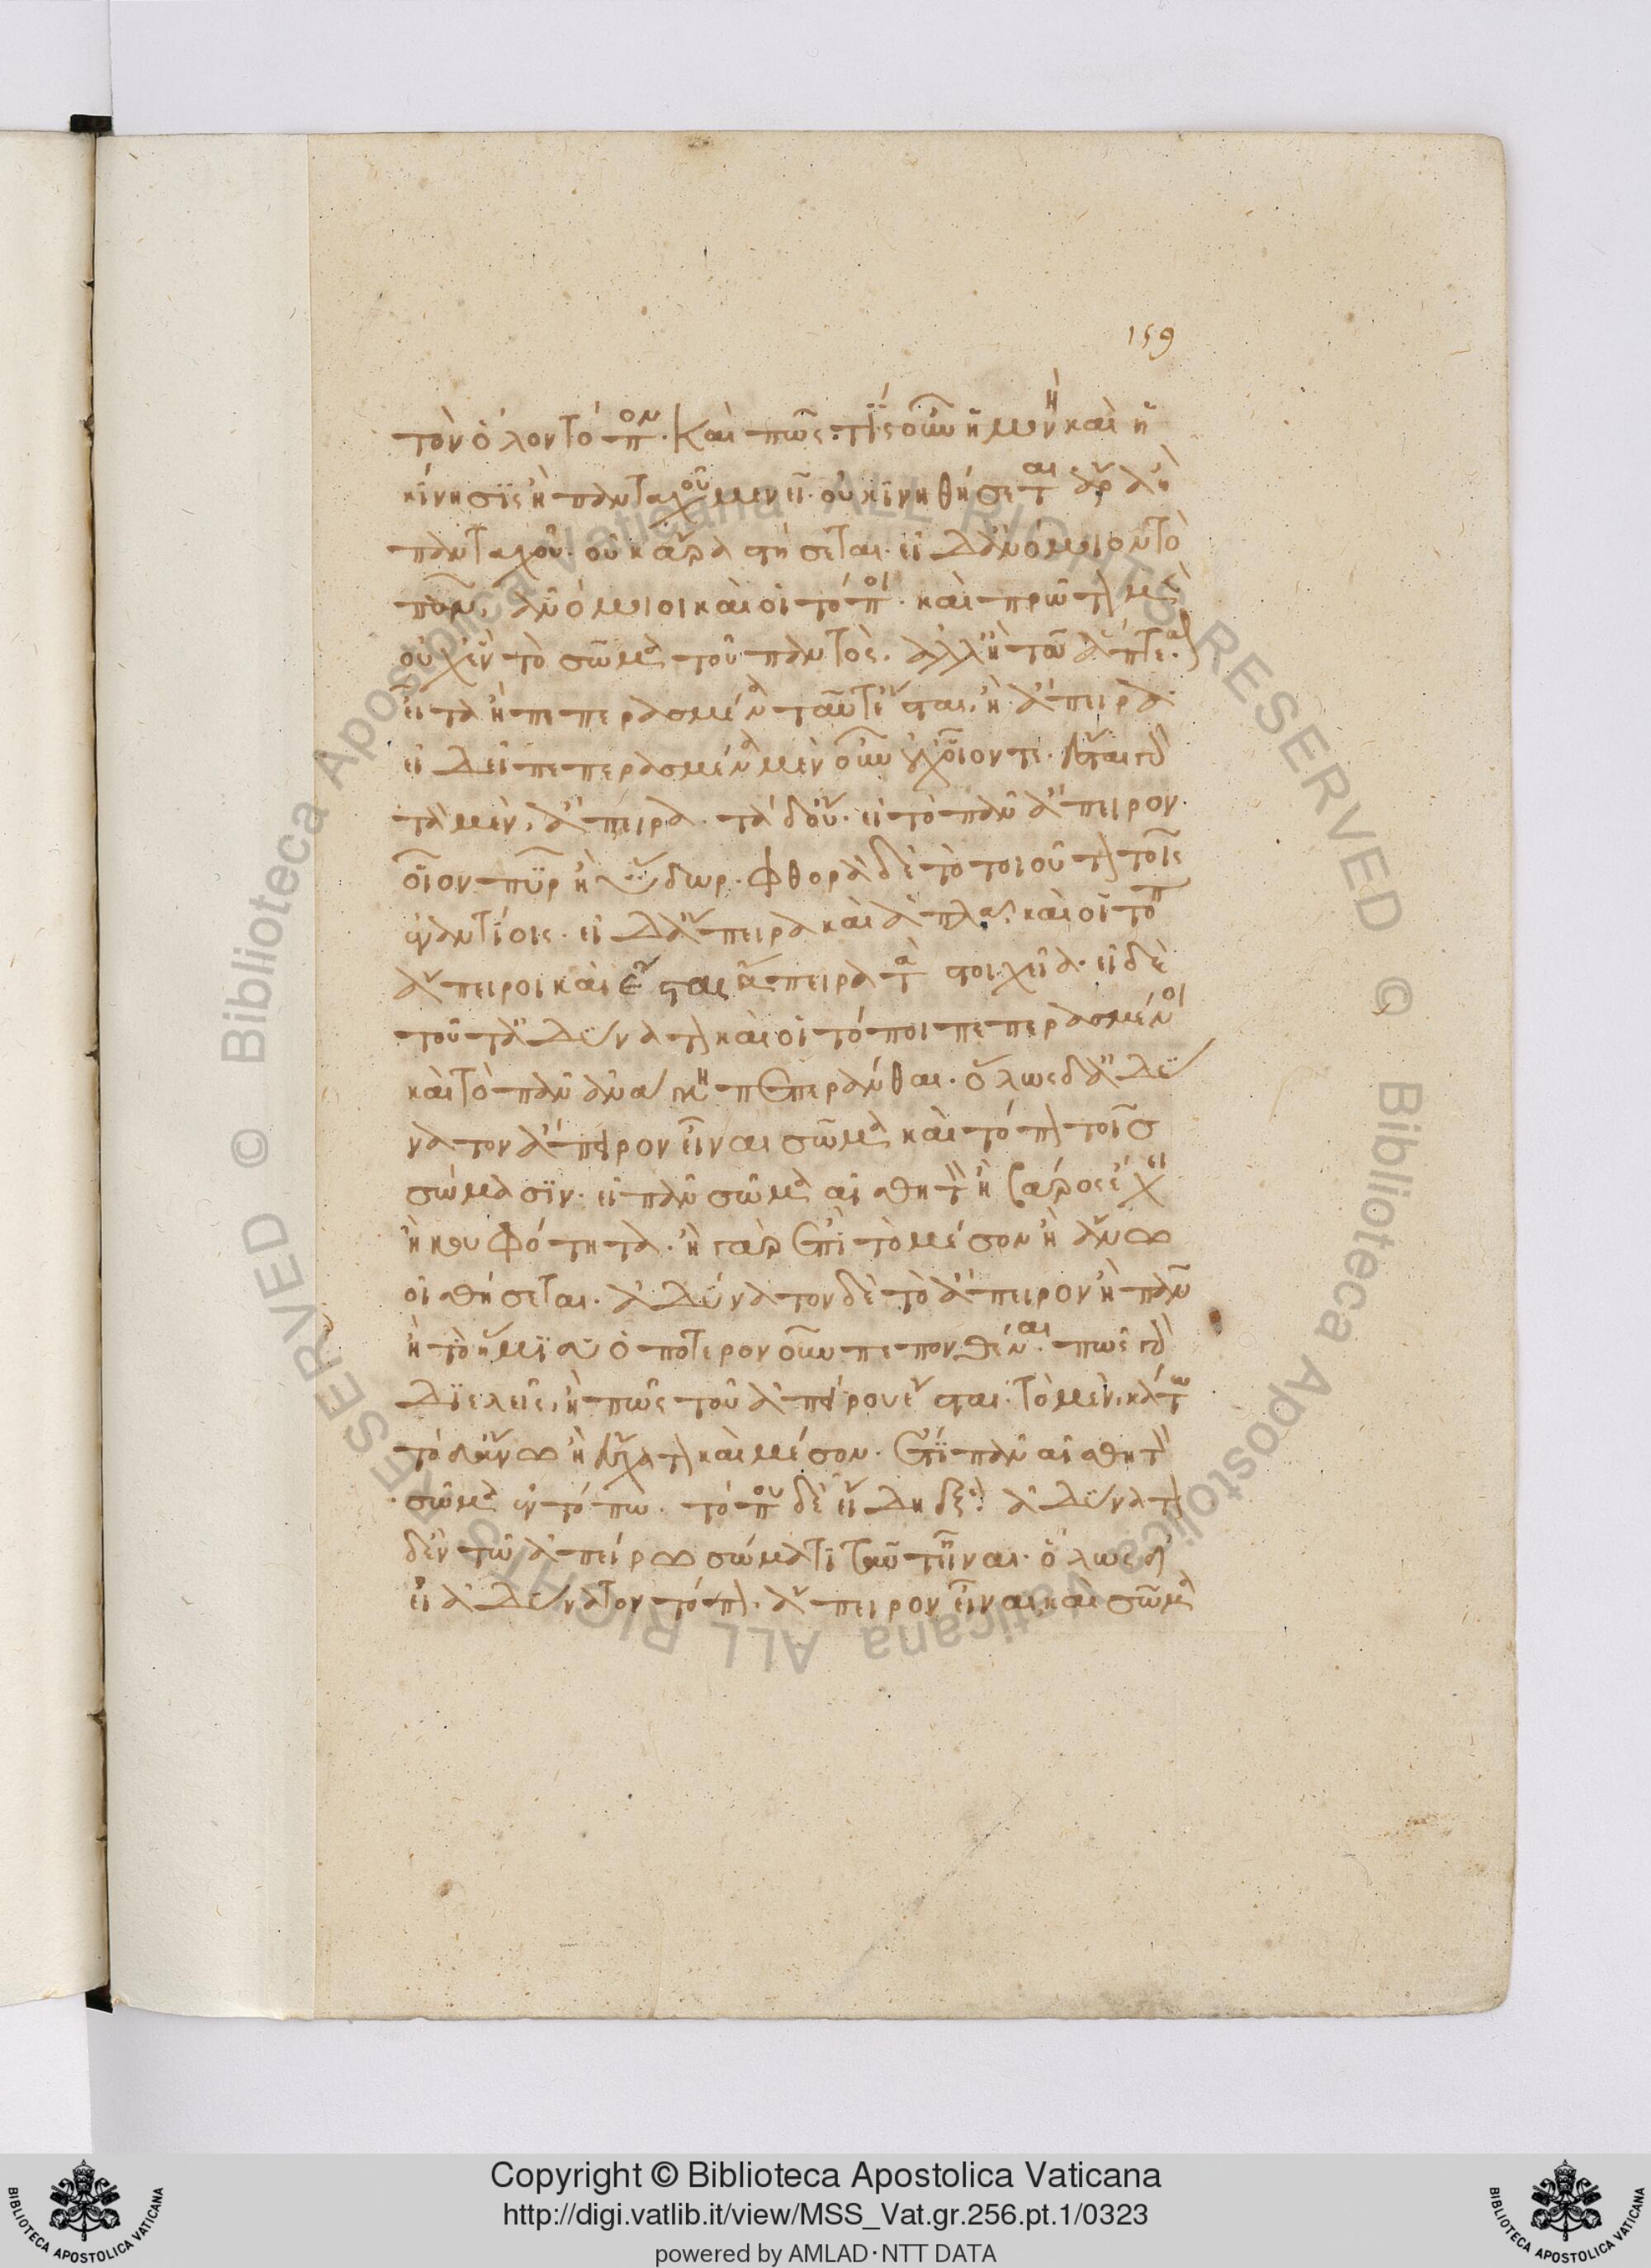 159
τὸν ὅλον τόπον. καὶ πῶς. τίς οὖν ἡ μονὴ καὶ ἡ
κίνησις ἢ πανταχοῦ μενεῖ. οὐ κινηθήσεται ἄρ' ἀεὶ
πανταχοῦ. οὐκ ἄρα στήσεται. εἰ δ' ἀνόμοιον τὸ
πᾶν, ἀνόμοιοι καὶ οἱ τόποι. καὶ πρῶτον μὲν
οὐχ ἓν τὸ σῶμα τοῦ παντὸς. ἀλλ' ἢ τῷ ἅπτεσθαι
εἶτα ἢ πεπερασμένα ταῦτ' ἔσται, ἢ ἄπειρα
εἴδει πεπερασμένα μὲν οὖν οὐχ οἷόν τε. ἔσται γὰρ
τὰ μὲν, ἄπειρα. τὰ δ' οὔ. εἰ τὸ πᾶν ἄπειρον.
οἷον πῦρ ἢ ὕδωρ. φθορὰ δὲ τὸ τοιοῦτον τοῖς
ἐναντίοις. εἰ δ' ἄπειρα καὶ ἁπλᾶ. καὶ οἱ τόποι
ἄπειροι καὶ ἔσται ἄπειρα τὰ στοιχεῖα. εἰ δὲ
τοῦτ' ἀδύνατον καὶ οἱ τόποι πεπερασμένοι
καὶ τὸ πᾶν ἀνάγκη πεπεράνθαι. ὅλως δ' ἀδύ
νατον ἄπειρον εἶναι σῶμα καὶ τόπον τοῖς
σώμασιν. εἰ πᾶν σῶμα αἰσθητὸν ἢ βάρος ἔχει
ἢ κουφότητα. ἢ γὰρ ἐπὶ τὸ μέσον ἢ ἄνω
οἰσθήσεται. ἀδύνατον δὲ τὸ ἄπειρον ἢ πᾶν
ἢ τὸ ἥμισυ ὁποτερονοῦν πεπονθέναι. πῶς γὰρ
διελεῖς, ἢ πῶς τοῦ ἀπείρου ἔσται. τὸ μὲν, κάτω
τὸ δ' ἄνω ἢ ἔσχατον καὶ μέσον. ἔτι πᾶν αἰσθητὸν
σῶμα ἐν τόπω. τόπου δὲ εἴδη ἕξ. ἀδύνατον
δ' ἐν τῶ ἀπείρω σώματι ταῦτ' εἶναι. ὅλως δ'
εἰ ἀδύνατον τόπον. ἄπειρον εἶναι καὶ σῶμα
Copyright © Biblioteca Apostolica Vaticana
http://digi.vatlib.it/view/MSS_Vat.gr.256.pt.1/0323
powered by AMLAD·NTT DATA